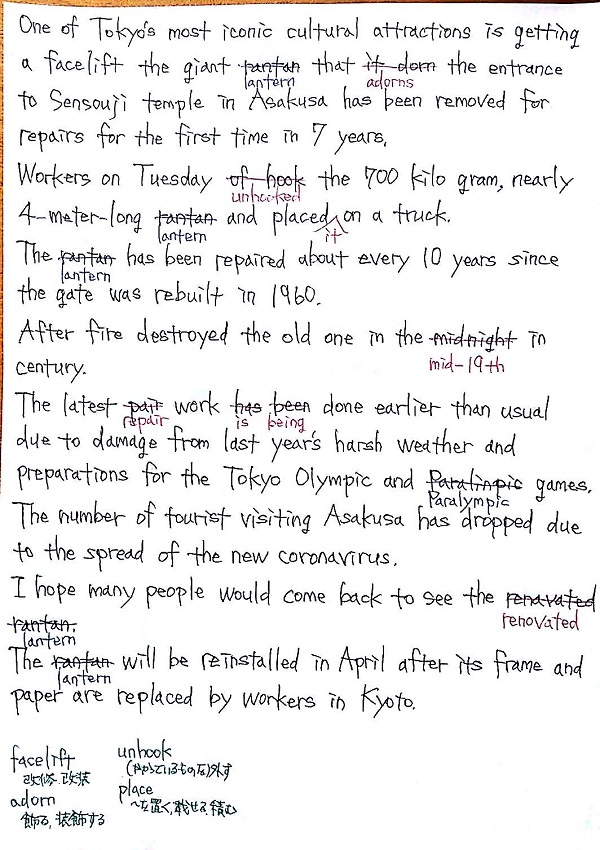 One of Tokyo's most iconic cultural attractions is getting
a facelift the giant rantan that it dorn the entrance
lantern adorns
to Sensouji temple in Asakusa has been removed for
repairs for the first time in 7 years.
Workers on Tuesday of hook the 700 kilo gram, nearly
unhooked
4-meter-long rantan and placed on a truck.
lantern it
The rantan has been repaired about every 10 years since
lantern
the gate was rebuilt in 1960.
After fire destroyed the old one in the midnight in
mid-19th
century.
The latest pair work has been done earlier than usual
repair is being
due to damage from last year's harsh weather and
preparations for the Tokyo Olympic and Paralinpic games.
Paralympic
The number of tourist visiting Asakusa has dropped due
to the spread of the new coronavirus.
I hope many people would come back to see the renavated
renovated
rantan.
lantern
The rantan will be reinstalled in April after its frame and
lantern
paper are replaced by workers in Kyoto.
facelift
改修、改装
adorn
飾る, 装飾する
unhook
外す
place
〜を置く, 載せる, 積む